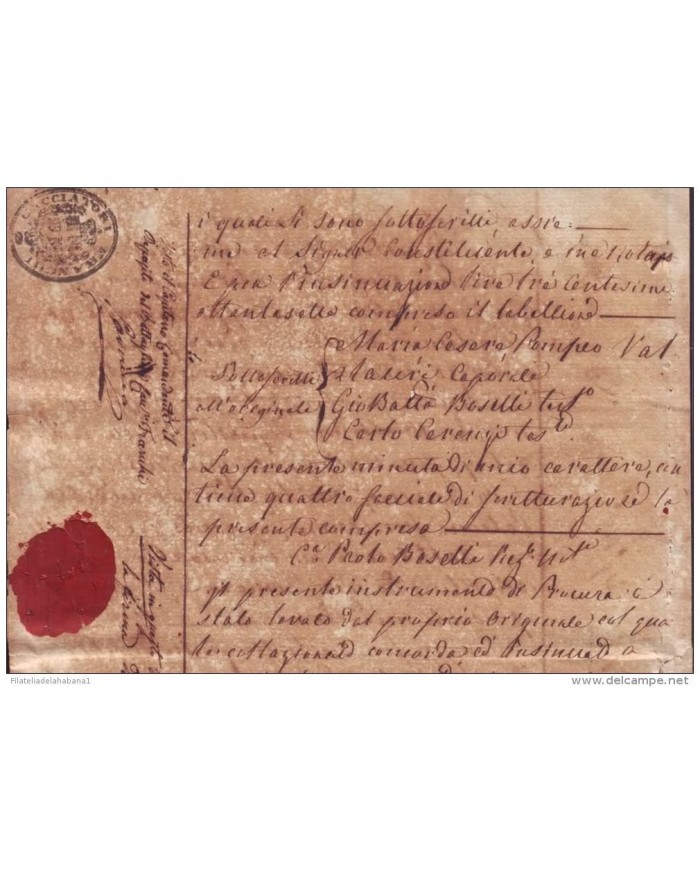 CACCIATORI FRANCHI
i quali si sono sottoscritti assie=
me al Signor Constituente, e me Notajo
E per l'insinuazione lire tre centesimi
ottantasette compreso il tabellione
Maria Cesare Pompeo Val
Sottoscritti Caporale
all'originale Gio Batta Boselli test.o
Carlo test.o
La presente minuta di mio carattere, con
tiene quattro facciate di scritturazione la
presente compresa
Paolo Boselli
presente instrumento di Procura è
stato levato dal proprio Originale col qua
le collazionato concorda ed insinuato a
Visto in quanto
la firma
Filateliadelahabana1
© www.delcampe.net